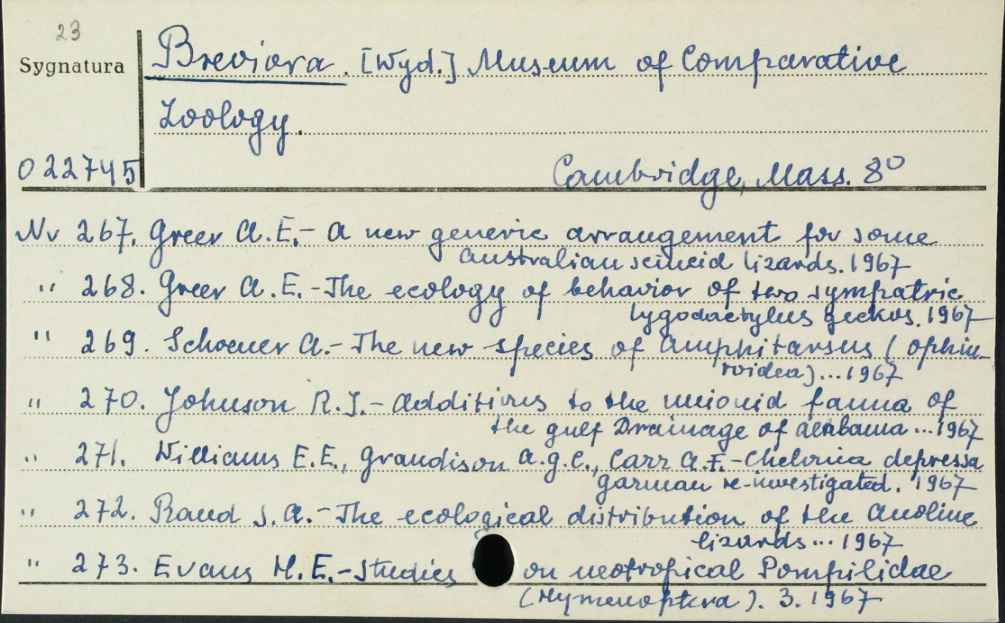 23
Sygnatura
Breviora. [Wyd.] Museum of Comparative
Zoology.
022745
Cambridge, Mass. 8°
Nr 267. Greer A.E.- A new generic arrangement for some
Australian scincid lizards. 1967
" 268. Greer A.E.-The ecology of behavior of two sympatric
lygodactylus geckos. 1967
" 269. Schoener A.- The new species of Amphitarsus (Ophiu-
roidea)...1967
" 270. Johnson R.I.- Additions to the unionid fauna of
the gulf Drainage of Alabama...1967
" 271. Williams E.E., Grandison A.G.C., Carr A.F.-Chelonia depressa
garman re-investigated. 1967
" 272. Rand S.A.-The ecological distribution of the Anoline
lizards...1967
" 273. Evans H.E.-Studies on neotropical Pompilidae
(Hymenoptera). 3.1967